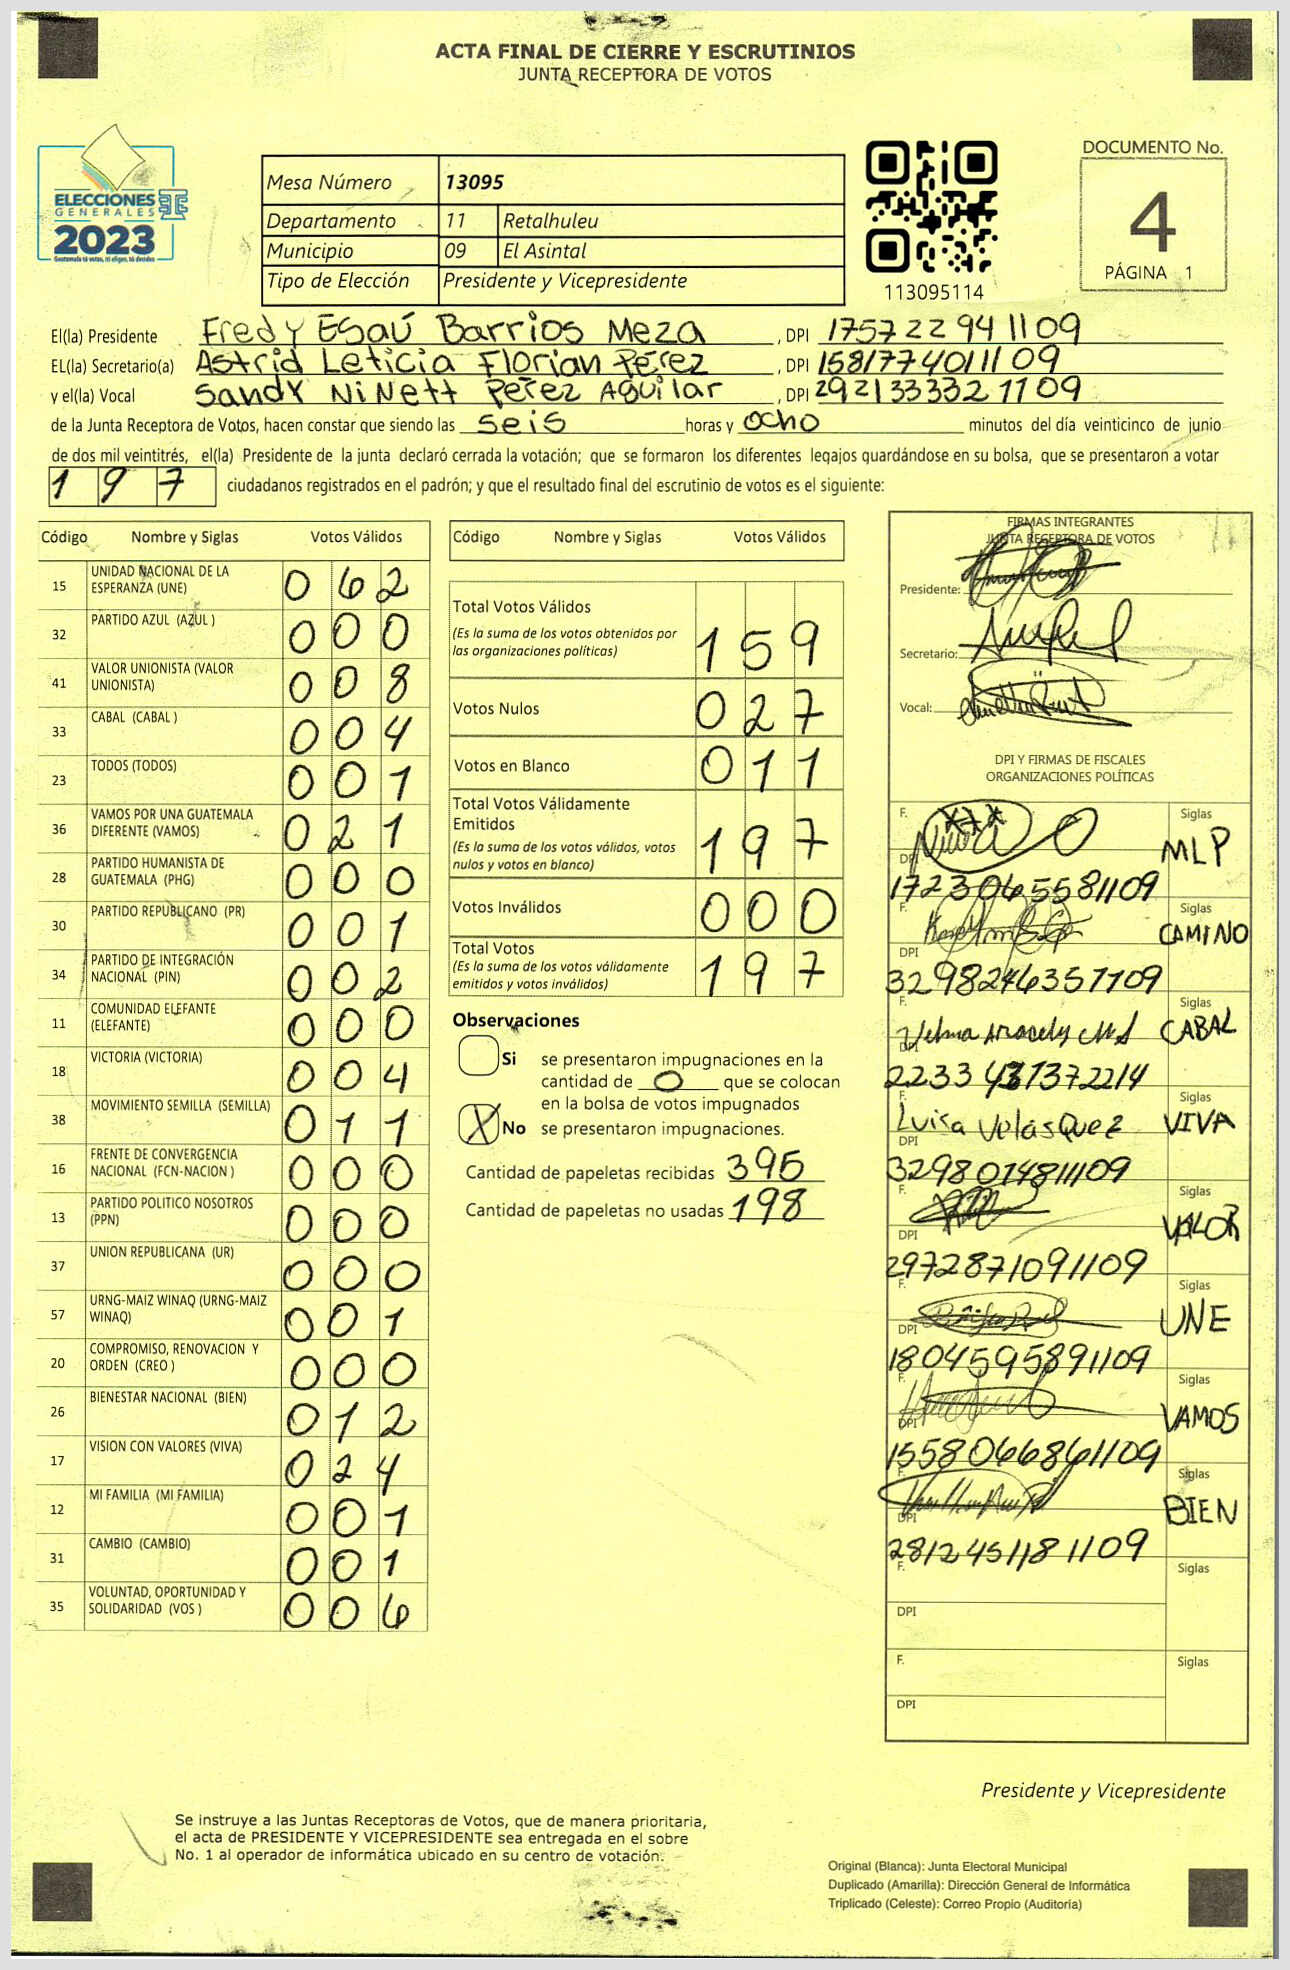 ACTA FINAL DE CIERRE Y ESCRUTINIOS
JUNTA RECEPTORA DE VOTOS
ELECCIONES
GENERALES
2023
Guatemala tú votas, tú eliges, tú decides
Mesa Número 13095
Departamento 11 Retalhuleu
Municipio 09 El Asintal
Tipo de Elección Presidente y Vicepresidente
113095114
DOCUMENTO No.
4
PÁGINA 1
El(la) Presidente Fredy Esaú Barrios Meza, DPI 1757 22 94 1109
EL(la) Secretario(a) Astrid Leticia Florian Pérez, DPI 1581774011109
y el(la) Vocal Sandy Ninett Perez Aguilar, DPI 2921333321109
de la Junta Receptora de Votos, hacen constar que siendo las seis horas y ocho minutos del día veinticinco de junio
de dos mil veintitrés, el(la) Presidente de la junta declaró cerrada la votación; que se formaron los diferentes legajos guardándose en su bolsa, que se presentaron a votar
197 ciudadanos registrados en el padrón; y que el resultado final del escrutinio de votos es el siguiente:
Código Nombre y Siglas Votos Válidos
15 UNIDAD NACIONAL DE LA ESPERANZA (UNE) 062
32 PARTIDO AZUL (AZUL ) 000
41 VALOR UNIONISTA (VALOR UNIONISTA) 008
33 CABAL (CABAL ) 004
23 TODOS (TODOS) 001
36 VAMOS POR UNA GUATEMALA DIFERENTE (VAMOS) 021
28 PARTIDO HUMANISTA DE GUATEMALA (PHG) 000
30 PARTIDO REPUBLICANO (PR) 001
34 PARTIDO DE INTEGRACIÓN NACIONAL (PIN) 002
11 COMUNIDAD ELEFANTE (ELEFANTE) 000
18 VICTORIA (VICTORIA) 004
38 MOVIMIENTO SEMILLA (SEMILLA) 011
16 FRENTE DE CONVERGENCIA NACIONAL (FCN-NACION ) 000
13 PARTIDO POLITICO NOSOTROS (PPN) 000
37 UNION REPUBLICANA (UR) 000
57 URNG-MAIZ WINAQ (URNG-MAIZ WINAQ) 001
20 COMPROMISO, RENOVACION Y ORDEN (CREO ) 000
26 BIENESTAR NACIONAL (BIEN) 012
17 VISION CON VALORES (VIVA) 024
12 MI FAMILIA (MI FAMILIA) 001
31 CAMBIO (CAMBIO) 001
35 VOLUNTAD, OPORTUNIDAD Y SOLIDARIDAD (VOS ) 006
Código Nombre y Siglas Votos Válidos
Total Votos Válidos 159
(Es la suma de los votos obtenidos por
las organizaciones políticas)
Votos Nulos 027
Votos en Blanco 011
Total Votos Válidamente
Emitidos 197
(Es la suma de los votos válidos, votos
nulos y votos en blanco)
Votos Inválidos 000
Total Votos 197
(Es la suma de los votos válidamente
emitidos y votos inválidos)
Observaciones
Si se presentaron impugnaciones en la
cantidad de 0 que se colocan
en la bolsa de votos impugnados
X No se presentaron impugnaciones.
Cantidad de papeletas recibidas 395
Cantidad de papeletas no usadas 198
FIRMAS INTEGRANTES
JUNTA RECEPTORA DE VOTOS
Presidente:
Secretario:
Vocal:
DPI Y FIRMAS DE FISCALES
ORGANIZACIONES POLÍTICAS
F. Siglas MLP
DPI 1723065581109
F. Siglas CAMINO
DPI 3298246351109
F. Velma Aracely Siglas CABAL
DPI
F. Luisa Velásquez Siglas VIVA
DPI 3298014811109
F. Siglas VALOR
DPI 2972871091109
F. Siglas UNE
DPI 1804595891109
F. Siglas VAMOS
DPI 1558066861109
F. Siglas BIEN
DPI 2812451181109
F. Siglas
DPI
F. Siglas
DPI
Presidente y Vicepresidente
Se instruye a las Juntas Receptoras de Votos, que de manera prioritaria,
el acta de PRESIDENTE Y VICEPRESIDENTE sea entregada en el sobre
No. 1 al operador de informática ubicado en su centro de votación.
Original (Blanca): Junta Electoral Municipal
Duplicado (Amarilla): Dirección General de Informática
Triplicado (Celeste): Correo Propio (Auditoría)